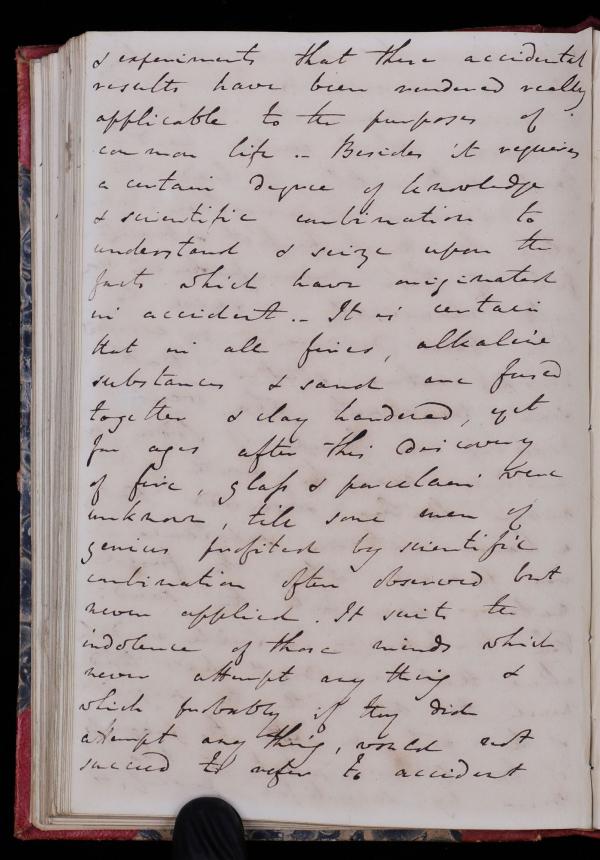 & experiments that these accidental
results have been rendered really
applicable to the purposes of
common life -- Besides it requires
a certain degree of knowledge
& scientific combination to
understand & seize upon the
facts which have originated
in accident -- It is certain
that in all fires, alkaline
substances & sand are fused
together & clay hardened, yet
for ages after this discovery
of fire, glass & porcelain were
unknown, till some men of
genius profited by scientific
combination often observed but
never applied. It suits the
indolence of those minds which
never attempt any thing &
which probably if they did
attempt any thing, would not
succeed to refer to accident